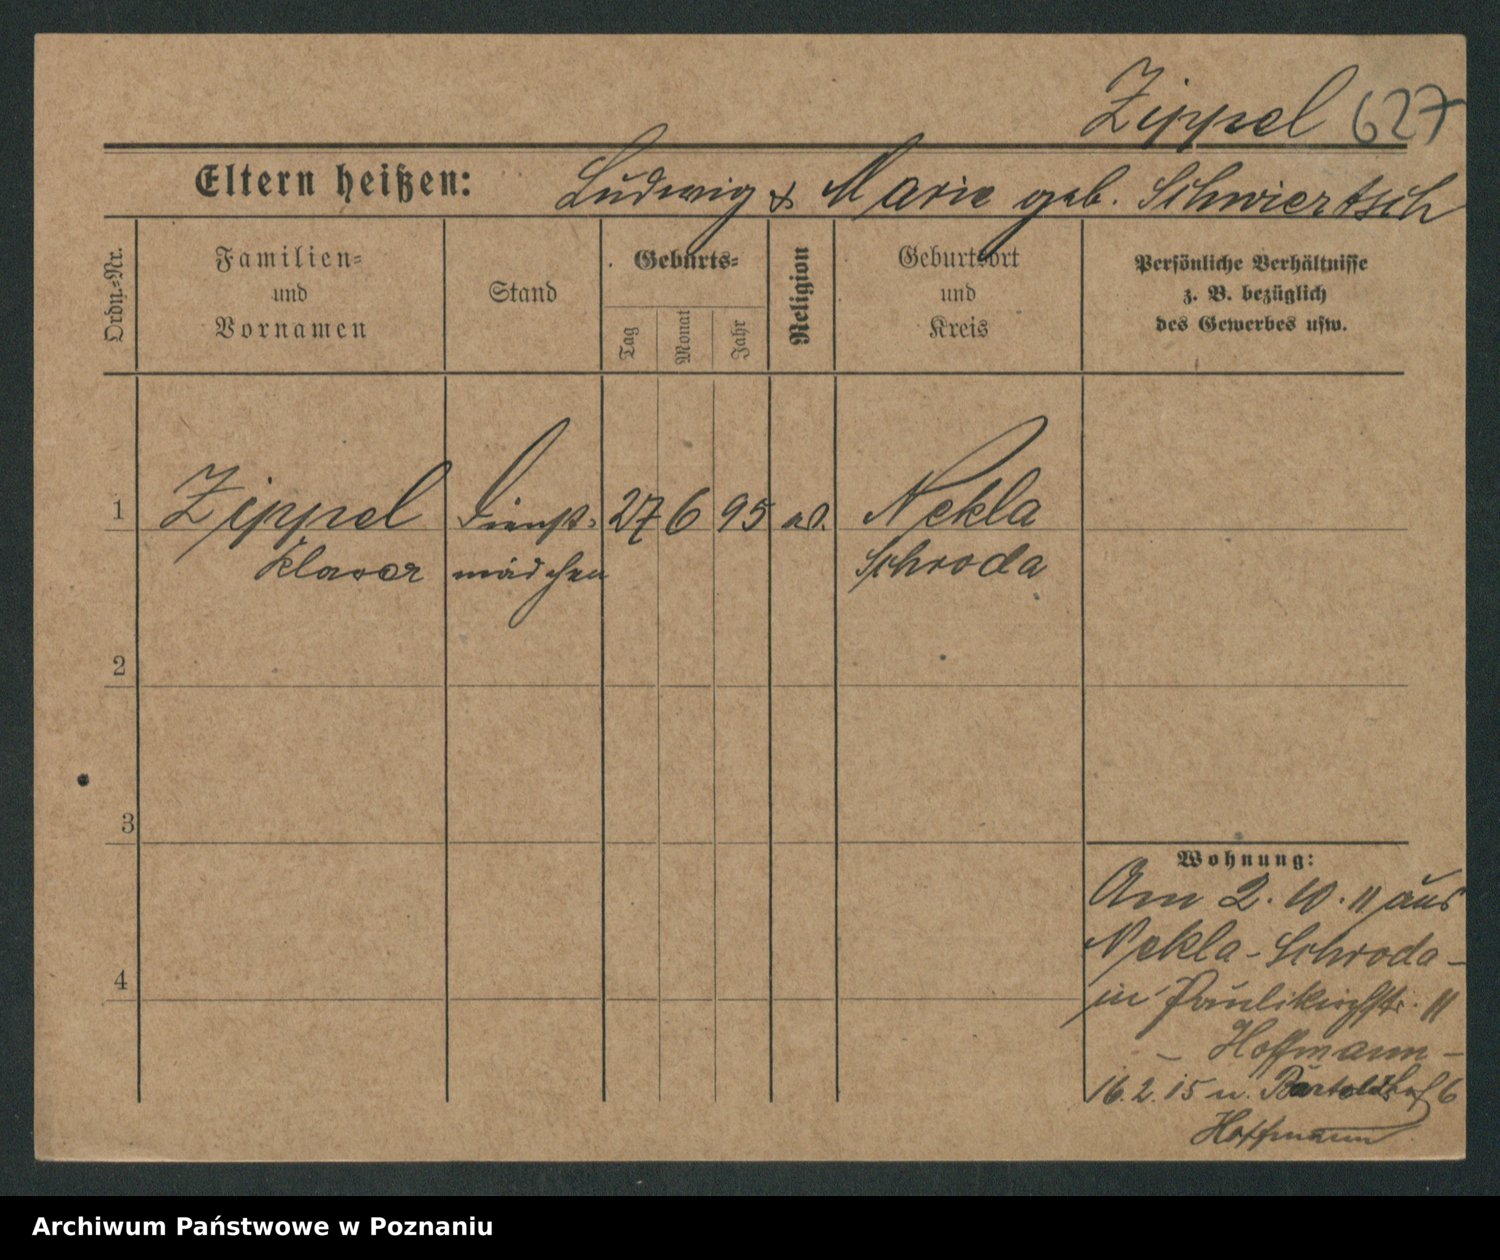 Zippel 627
Eltern heißen: Ludwig & Marie geb. Schwiertsch
Ordn.-Nr.
Familien-
und
Vornamen
Stand
Geburts-
Tag
Monat
Jahr
Religion
Geburtsort
und
Kreis
Persönliche Verhältnisse
z. B. bezüglich
des Gewerbes usw.
1 Zippel Dienst- 27 6 95 Nekla
Klara mädchen Schroda
2
3
4
Wohnung:
Am 2. 10. 11 aus
Nekla - Schroda -
in Paulikirchstr. 11
- Hoffmann -
16. 2. 15 n. Bartoldshof 6
Hoffmann
Archiwum Państwowe w Poznaniu